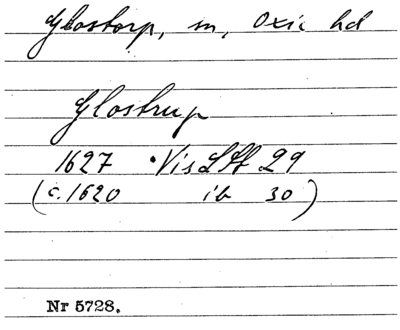 Glostorp, sn, Oxie hd
Glostrup
1627 • Vis LSt 29
(c. 1620 ib 30)
Nr 5728.